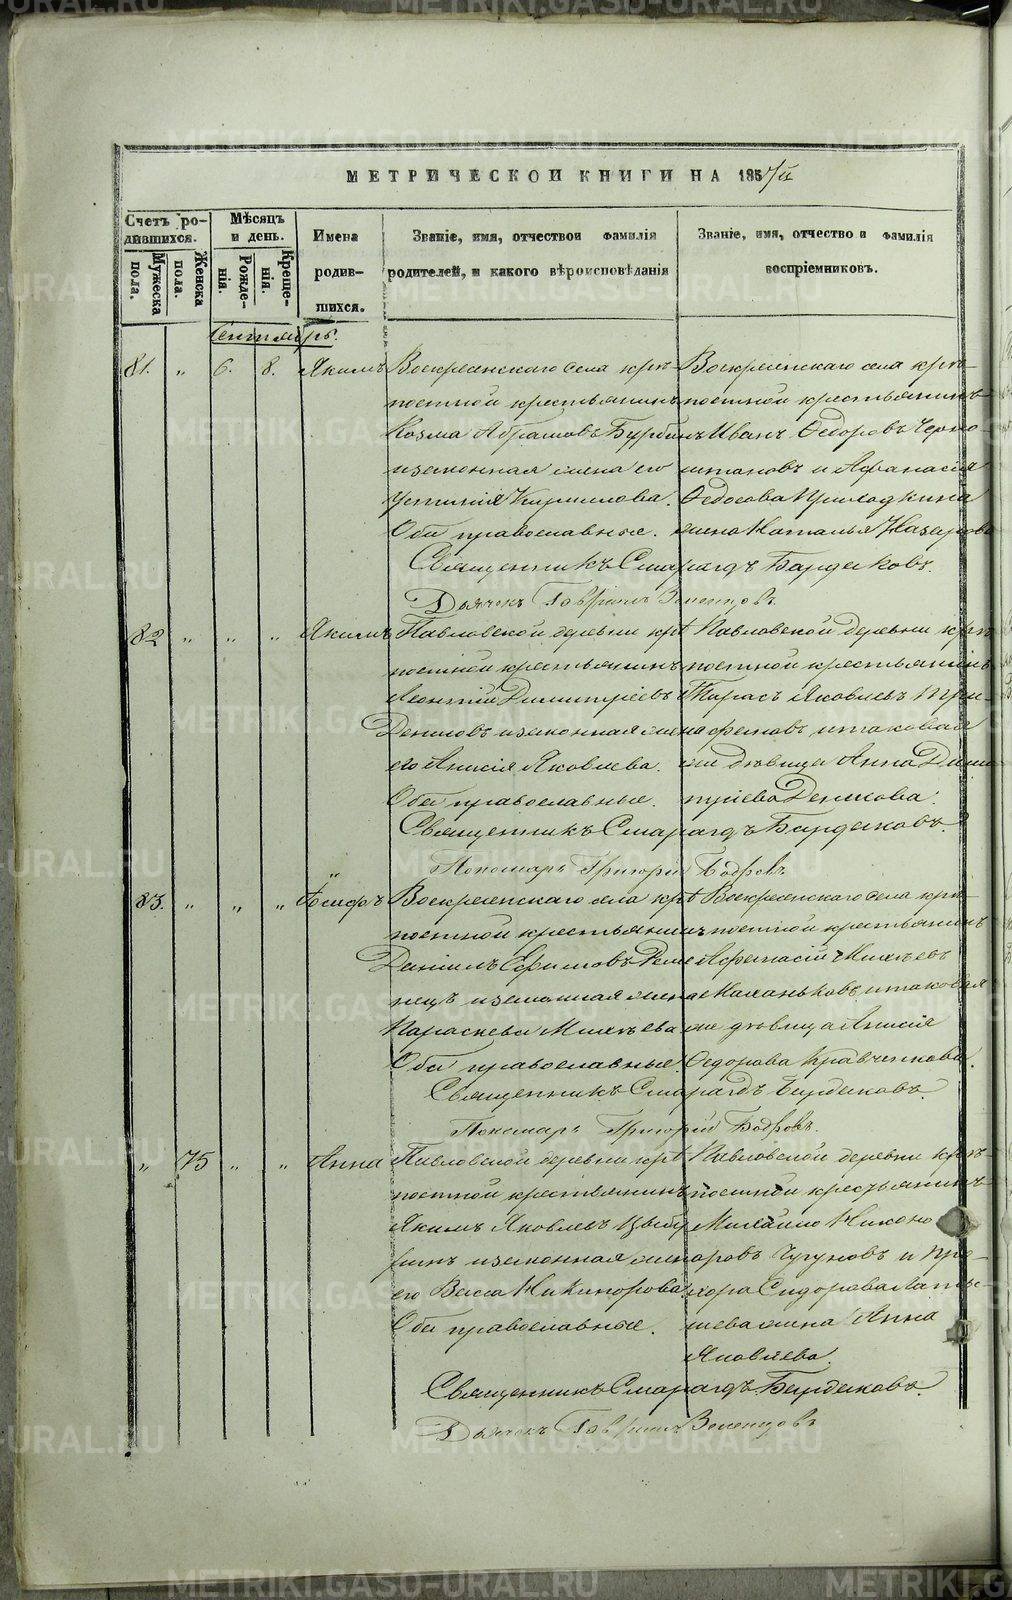 МЕТРИЧЕСКОЙ КНИГИ НА 1857й
Счетъ ро-
дившихся.
Мужеска пола.
Женска пола.
Мѣсяцъ
и день.
Рожде-
нія.
Креще-
нія.
Имена
родив-
шихся.
Званіе, имя, отчествои фамилія
родителей, и какого вѣроисповѣданія
Званіе, имя, отчество и фамилія
воспріемниковъ.
Сентябрь.
81. „ 6. 8. Якимъ
Воскресенскаго села крѣ-
постной крестьянинъ
Козма Абрамовъ Бурбинъ
и законная жена его
Устинія Кирилова.
Оба православные.
Воскресенскаго села крѣ-
постной крестьянинъ
Иванъ Ѳедоровъ Черно-
штановъ и Афанасія
Ѳедосова Приходкина
жена Наталья Назарова
Священникъ Смарагдъ Бардаковъ.
Дьячекъ Гавріилъ Зеленцовъ
82 „ „ „ Якимъ
Павловской деревни крѣ
постной крестьянинъ
Леонтій Димитріевъ
Денисовъ и законная жена
его Анисія Яковлева.
Оба православные.
Павловской деревни крѣ-
постной крестьянинъ
Тарасъ Яковлевъ Три-
фановъ и таковая
же дѣвица Анна Дими-
тріева Денисова.
Священникъ Смарагдъ Бардаковъ.
Пономарь Григорій Бодровъ
83. „ „ „ Іосифъ
Воскресенскаго села крѣ
постной крестьянинъ
Даніилъ Ефимовъ Реме
нецъ и законная жена
Параскева Михѣева
Оба православные.
Воскресенскаго села крѣ-
постной крестьянинъ
Афанасій Михѣевъ
Маханьковъ и таковая
же дѣвица Анисія
Ѳедорова Кравченкова.
Священникъ Смарагдъ Бардаковъ.
Пономарь Григорій Бодровъ.
„ 75 „ „ Анна
Павловской деревни крѣ
постной крестьянинъ
Якимъ Яковлевъ Цыбу
линъ и законная жена
его Васса Никифорова
Оба православные.
Павловской деревни крѣ-
постной крестьянинъ
Михайло Никано
ровъ Чугуновъ и Про-
хора Сидорова Латы-
шева жена Анна
Яковлева.
Священникъ Смарагдъ Бардаковъ.
Дьячекъ Гавріилъ Зеленцовъ
METRIKI.GASO-URAL.RU